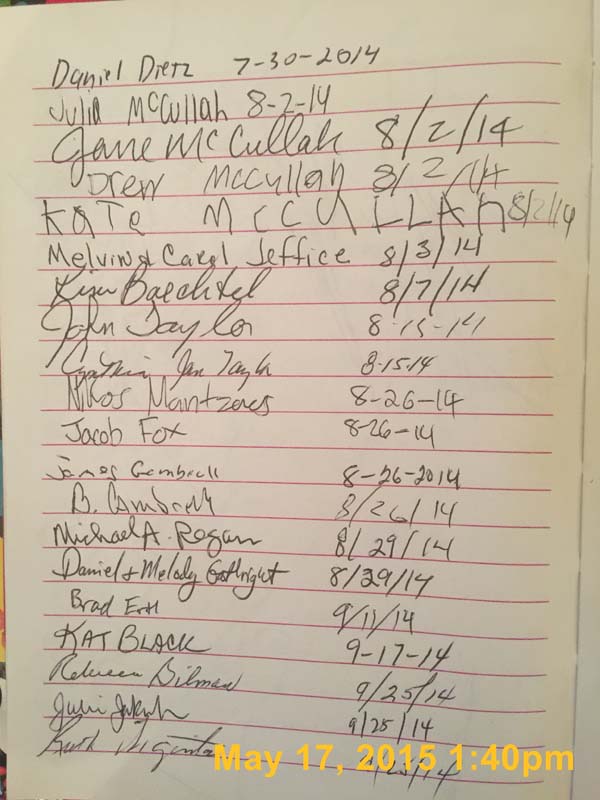 Daniel Dietz 7-30-2014
Julia McCullah 8-2-14
Jane McCullah 8/2/14
Drew McCullah 8/2/14
KATE McCULLAh 8/2/14
Melvin & Carol Jeffice 8/3/14
Lisa Baechtel 8/7/14
John Taylor 8-15-14
Cynthia Jan Taylor 8-15-14
Nikos 8-26-14
Jacob Fox 8-26-14
James Gambrell 8-26-2014
B. Gambrell 8/26/14
Michael A. Rogan 8/29/14
Daniel & Melody Gathright 8/29/14
Brad 9/11/14
KAT BLACK 9-17-14
Rebecca 9/25/14
Julie 9/25/14
Ruth
May 17, 2015 1:40pm